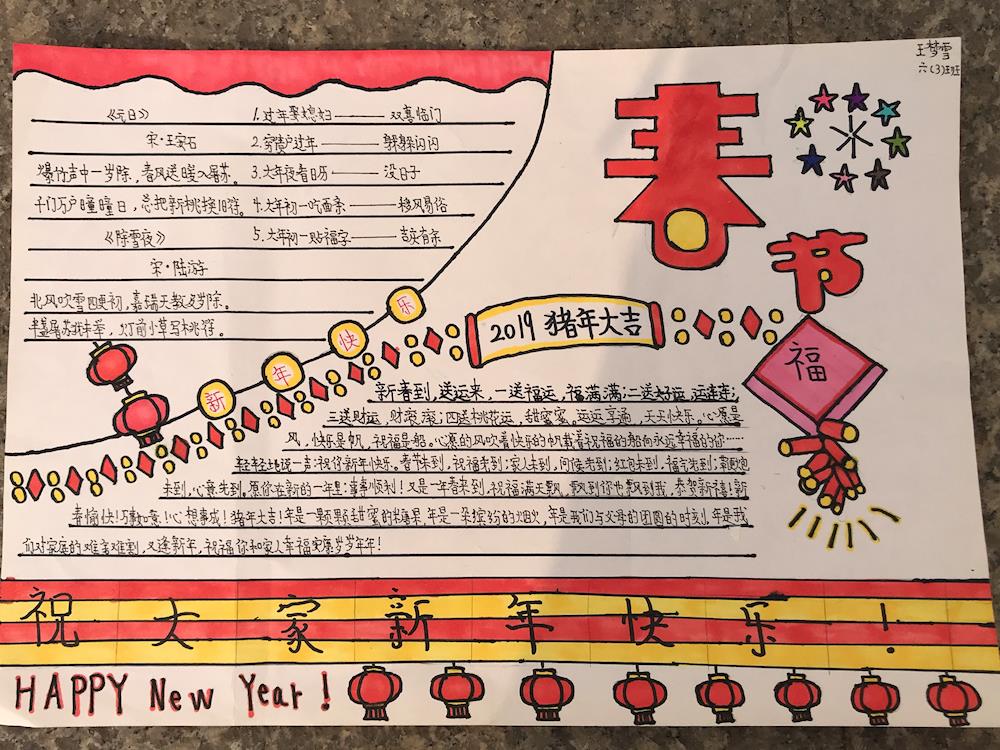 王梦雪
六(3)班
春节
《元日》
宋·王安石
爆竹声中一岁除，春风送暖入屠苏。
千门万户曈曈日，总把新桃换旧符。
《除雪夜》
宋·陆游
北风吹雪四更初，嘉瑞天教及岁除。
半盏屠苏犹未举，灯前小草写桃符。
1.过年娶媳妇——双喜临门
2.穷债户过年——躲躲闪闪
3.大年夜看日历——没日子
4.大年初一吃面条——移风易俗
5.大年初一贴福字——吉庆有余
新年快乐
2019 猪年大吉
福
新春到，送运来，一送福运，福满满；二送好运，运连连；
三送财运，财滚滚；四送桃花运，甜蜜蜜，运运享通，天天快乐。心愿是
风，快乐是帆，祝福是船。心愿的风吹着快乐的帆载着祝福的船向永远幸福的你……
轻轻地说一声：祝你新年快乐。春节未到，祝福先到；家人未到，问候先到；红包未到，福气先到；鞭炮
未到，心意先到。愿你在新的一年里：事事顺利！又是一年春来到，祝福满天飘，飘到你也飘到我，恭贺新禧！新
春愉快！万事如意！心想事成！猪年大吉！年是一颗颗甜蜜的糖果，年是一朵缤纷的烟火，年是我们与父母的团圆的时刻，年是我
们对家庭的难舍难割，又逢新年，祝福你和家人幸福安康岁岁年年！
祝大家新年快乐！
HAPPY New Year!